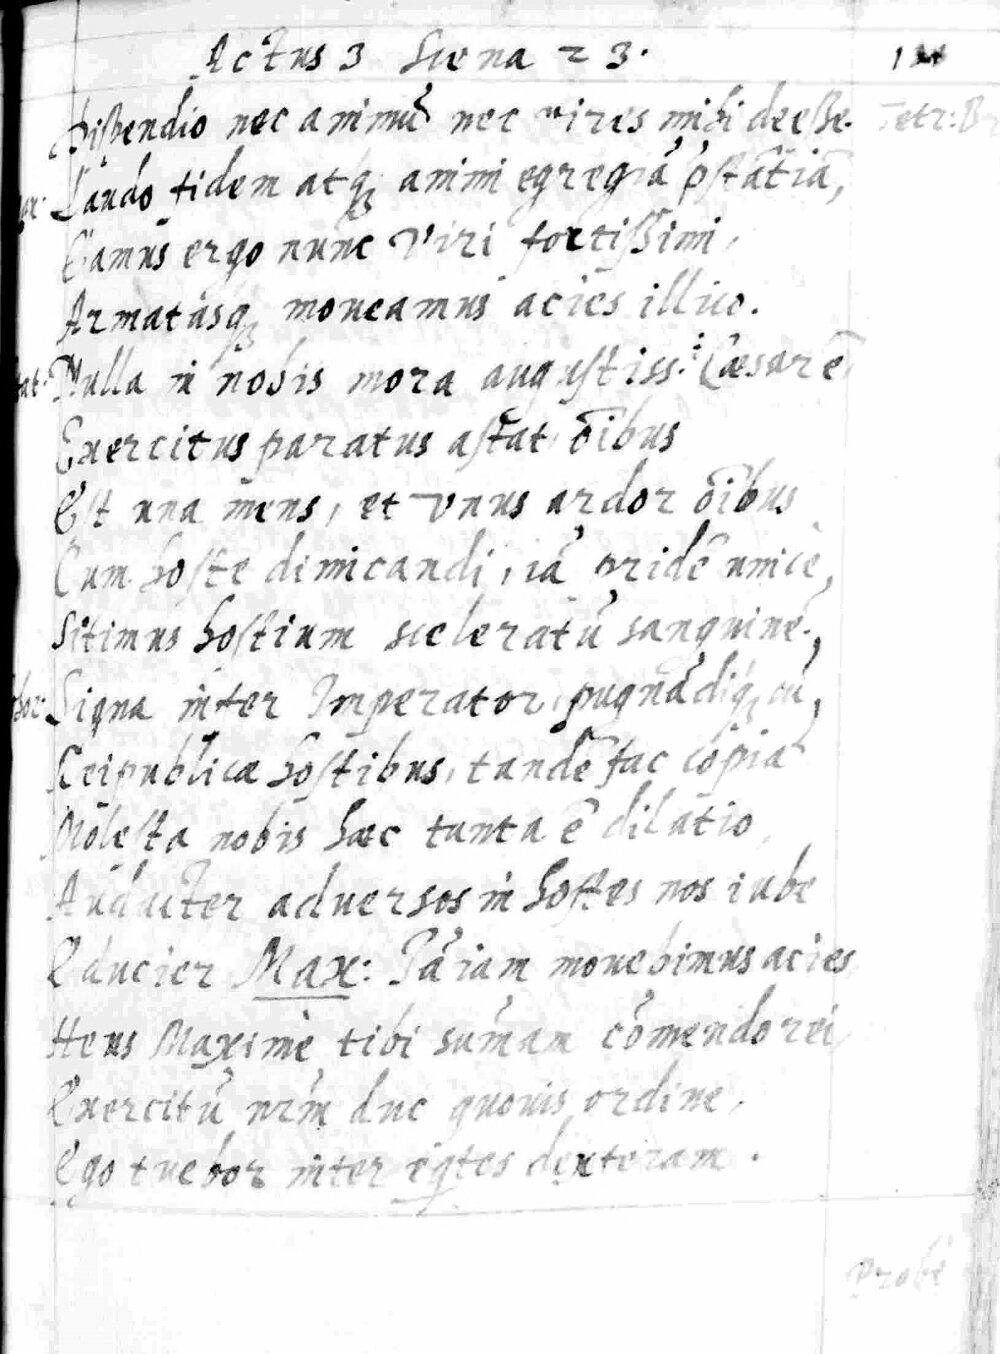 Actus 3 Scena 2 3.
Dispendio nec animū nec vires mihi deesse.
Laudo fidem atq₃ animi egregiā p̄stātiā,
Eamus ergo nunc viri fortissimi,
Armatásq₃ moueamus acies illuc.
Nulla in nobis mora augustiss: Cæsar ē,
Exercitus paratus astat, oībus
Est una mens, et vnus ardor oībus
Cum hoste dimicandi, iā pridē unicè,
Sitimus hostium sceleratū sanguinē,
Signa infer Imperator, pugnādiq₃ cū,
Reipublicæ hostibus, tandē fac copiā
Molesta nobis hæc tanta ē dilatio,
Audacter aduersos in hostes nos iube
Educier Max: Iā iam mouebimus acies
Heus Maxime tibi sum̄am cōmendo rei,
Exercitū nrm̄ duc quouis ordine,
Ego tuebor inter eq̄tes dexteram.
Probè